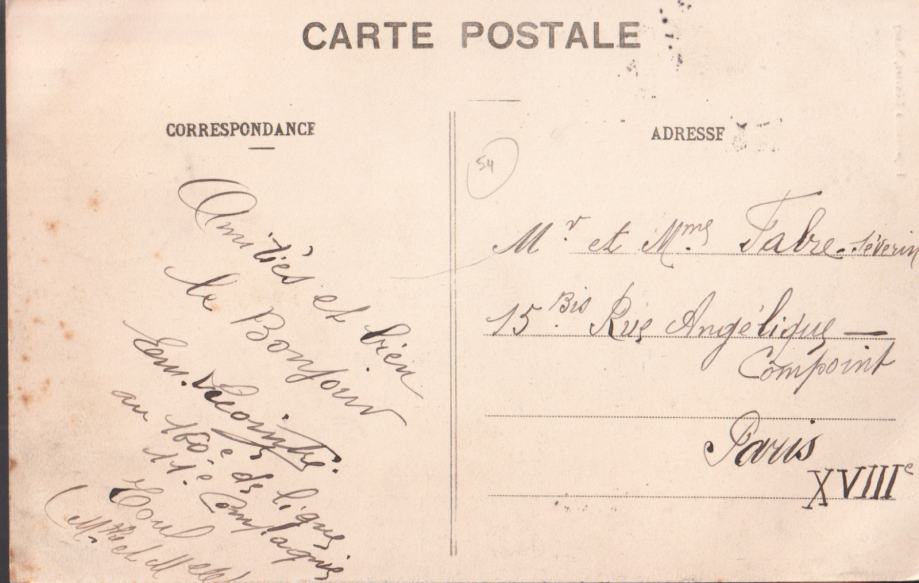 CARTE POSTALE
CORRESPONDANCE
ADRESSE
54
Amitiés et bien
le Bonjour
Em. Lecointre.
au 160e de ligne
11e Compagnie
Toul
(Mthe et M
Mr et Mme Fabre-Séverin
15 Bis Rue Angélique —
Compoint
Paris
XVIIIe